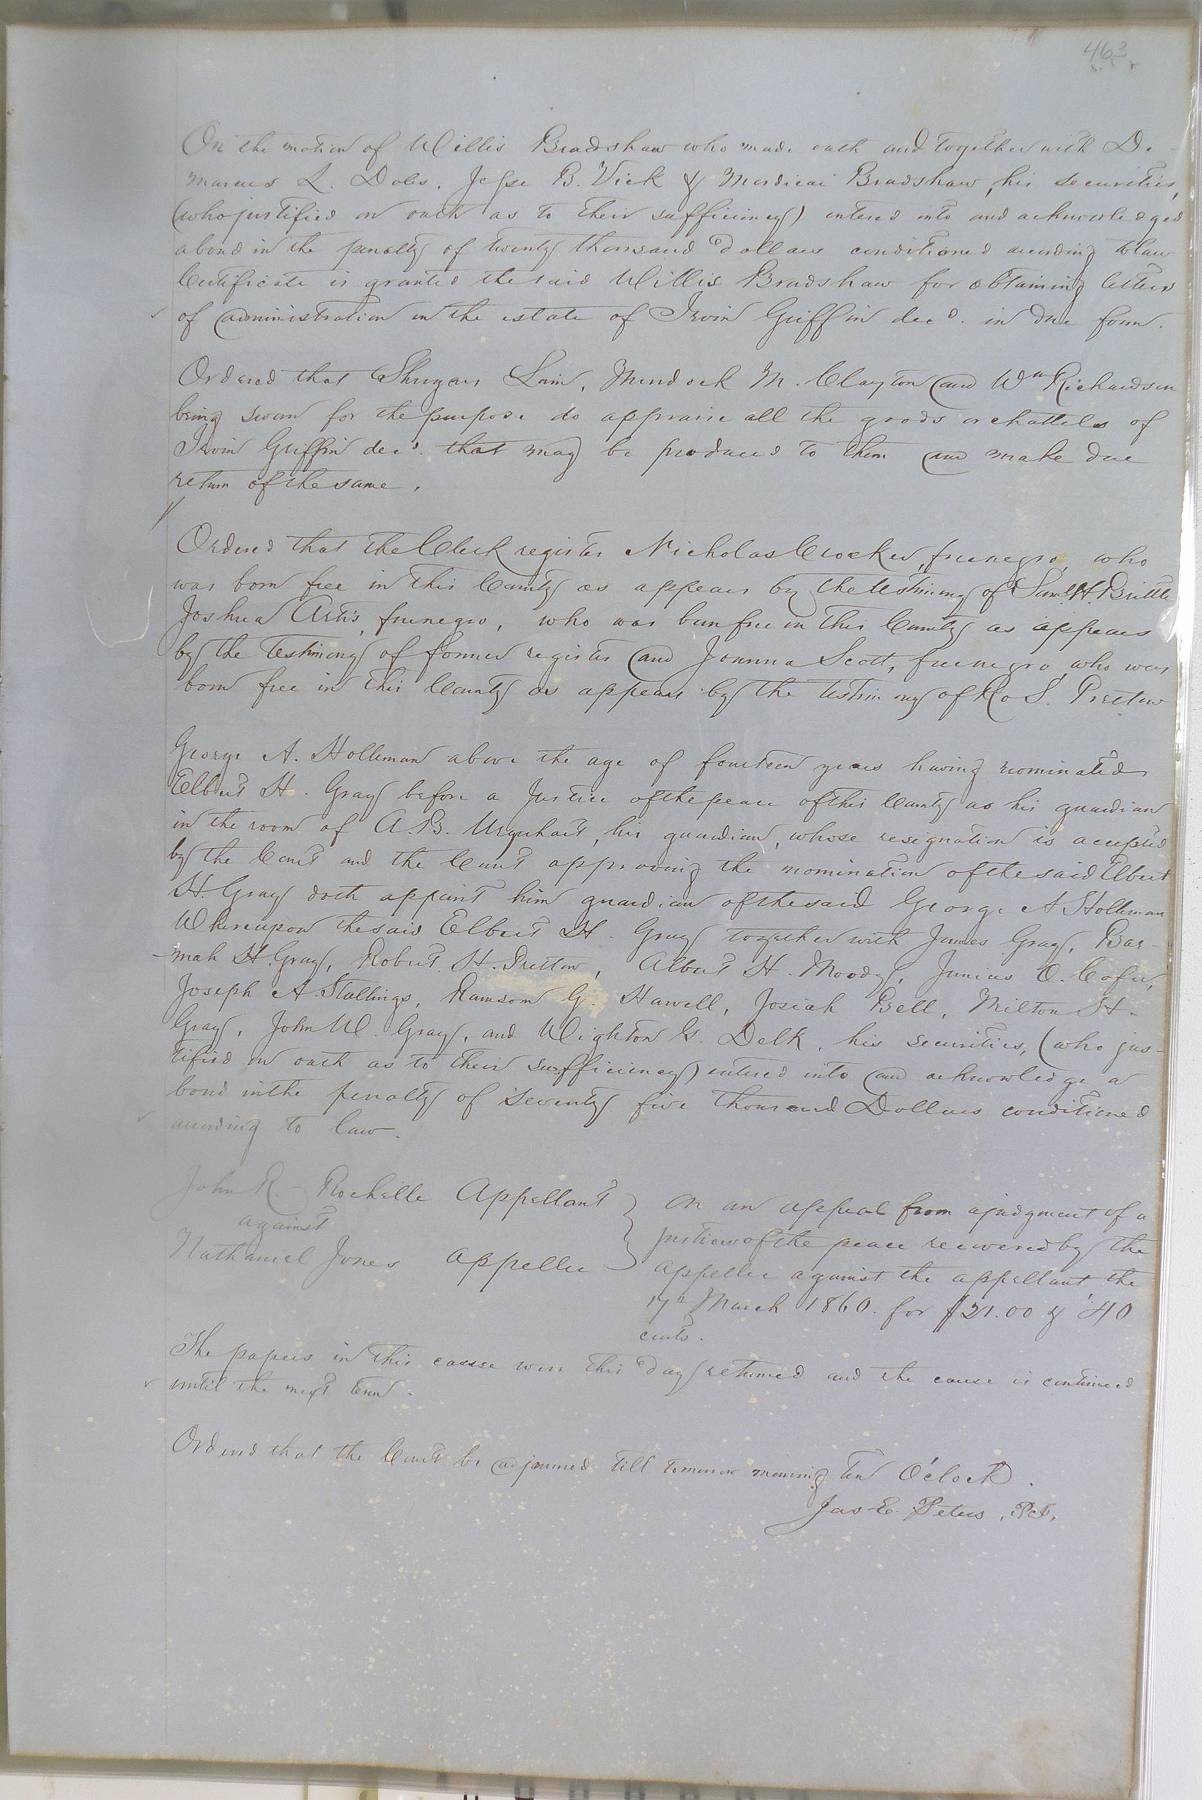 463
On the motion of Willis Bradshaw who made oath and together with De-
marcus L. Doles, Jesse B. Vick & Mordicai Bradshaw, his securities,
(who justified on oath as to their sufficiency) entered into and acknowledged
a bond in the penalty of twenty thousand Dollars conditioned according to law
Certificate is granted the said Willis Bradshaw for obtaining letters
of administration on the estate of Irvin Griffin decd. in due form.
Ordered that Lain, Murdock M. Clayton and Wm Richardson
being sworn for the purpose do appraise all the goods or chattels of
Irvin Griffin decd. that may be produced to them and make due
return of the same.
Ordered that the Clerk register Nicholas Crocker, free negro, who
was born free in this County as appears by the testimony of Saml. H. Britt
Joshua Artis, free negro, who was born free in this County as appears
by the testimony of former register and Joanna Scott, free negro, who was
born free in this County as appears by the testimony of Ro S. Pretlow
George A. Holleman above the age of fourteen years having nominated
Elbert H. Gray before a Justice of the peace of this County as his guardian
in the room of A. B. Urquhart, his guardian, whose resignation is accepted
by the Court and the Court approving the nomination of the said Elbert
H. Gray doth appoint him guardian of the said George A Holleman
Whereupon the said Elbert H. Gray together with James Gray, Bar-
mah H. Gray, Robert H. Pretlow, Albert H. Moody, Junius O. Cofer,
Joseph A. Stallings, Ransom G. Hawell, Josiah Bell, Milton H.
Gray, John W. Gray, and Wighton G. Delk, his securities, (who jus-
tified on oath as to their sufficiency) entered into and acknowledge a
bond in the penalty of Seventy five thousand Dollars conditioned
according to law.
John R. Rochelle Appellant
against
Nathaniel Jones Appellee
On an appeal from a judgment of a
Justice of the peace recovered by the
appellee against the appellant the
17th March 1860. for $21.00 & 40
cents.
The papers in this cause were this day returned and the cause is continued
until the next term.
Ordered that the Court be adjourned till tomorrow morning ten O'clock.
Jas E. Peters, P.J.